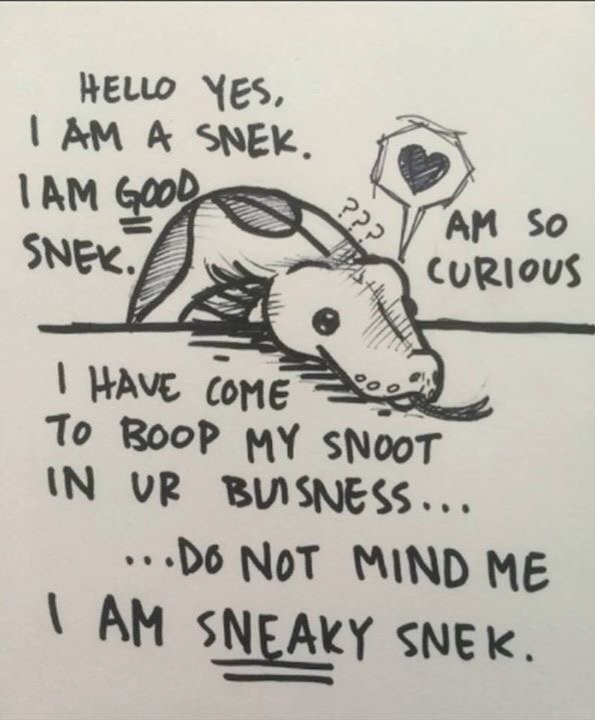 HELLO YES,
I AM A SNEK.
I AM GOOD
SNEK.
???
AM SO
CURIOUS
I HAVE COME
TO BOOP MY SNOOT
IN UR BUISNESS...
...DO NOT MIND ME
I AM SNEAKY SNEK.